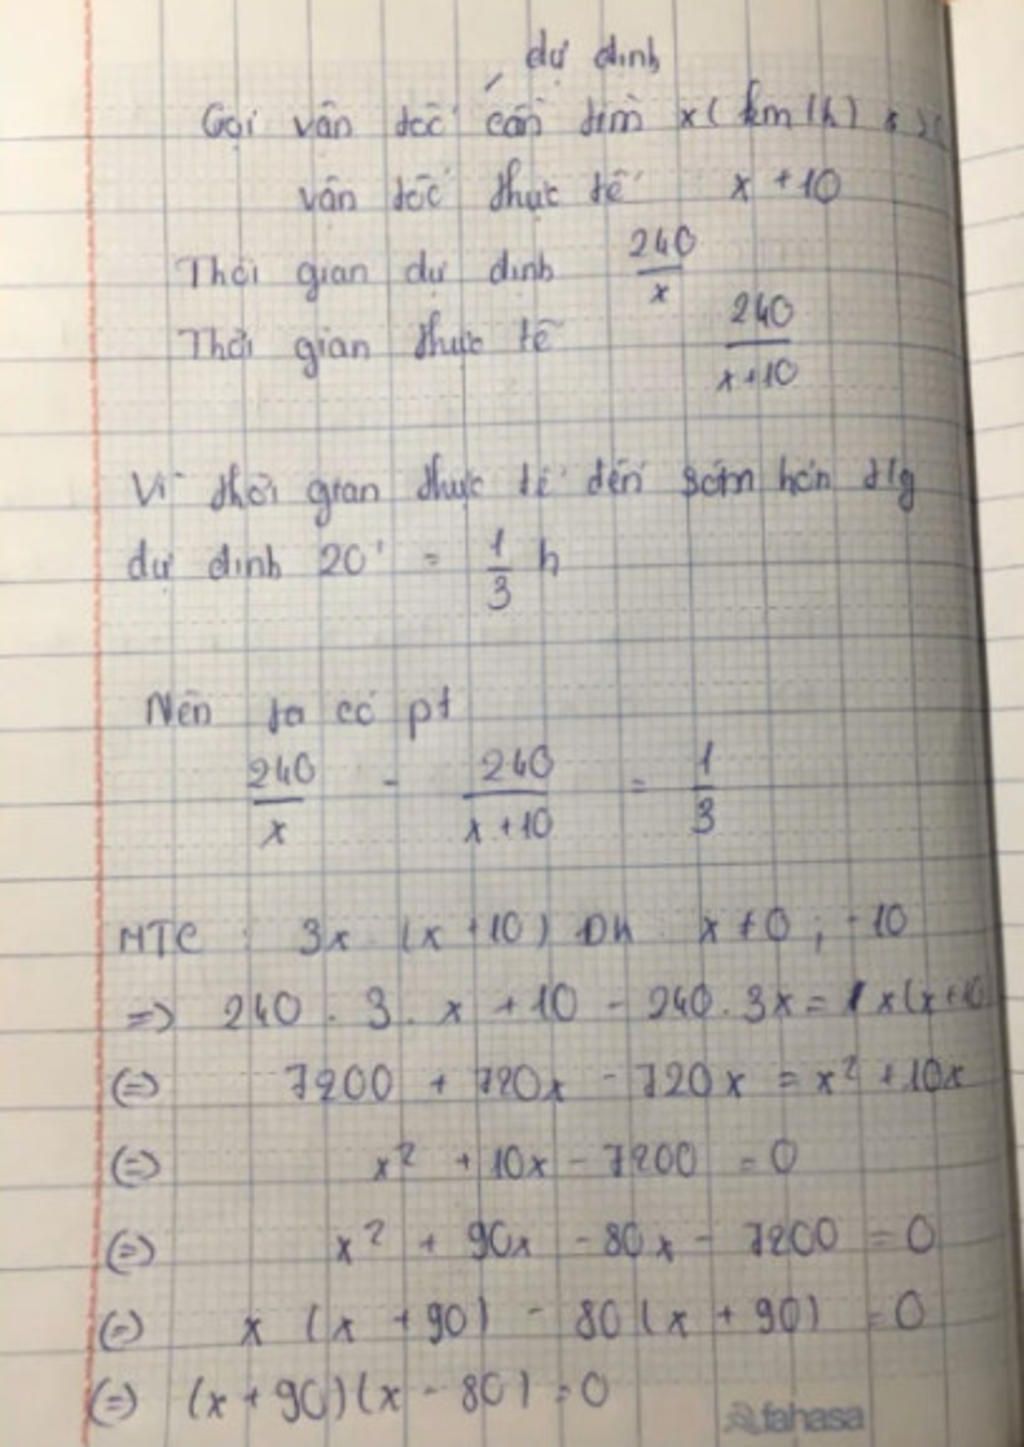 dự định
Gọi vân tốc cần tìm x ( km/h) x >
vân tốc thực tế x + 10
Thời gian dự định 240/x
Thời gian thực tế 240/x+10
Vì thời gian thực tế đến sớm hơn t/g
dự định 20' = 1/3 h
Nên ta có pt
240/x - 240/x+10 = 1/3
MTC : 3x (x +10) ĐK x ≠ 0 ; -10
=> 240 . 3 . x + 10 - 240 . 3x = 1 x(x+10
(=) 7200 + 720x - 720x = x² + 10x
(=) x² + 10x - 7200 = 0
(=) x² + 90x - 80x - 7200 = 0
(=) x (x + 90) - 80 (x + 90) = 0
(=) (x + 90)(x - 80) = 0
fahasa